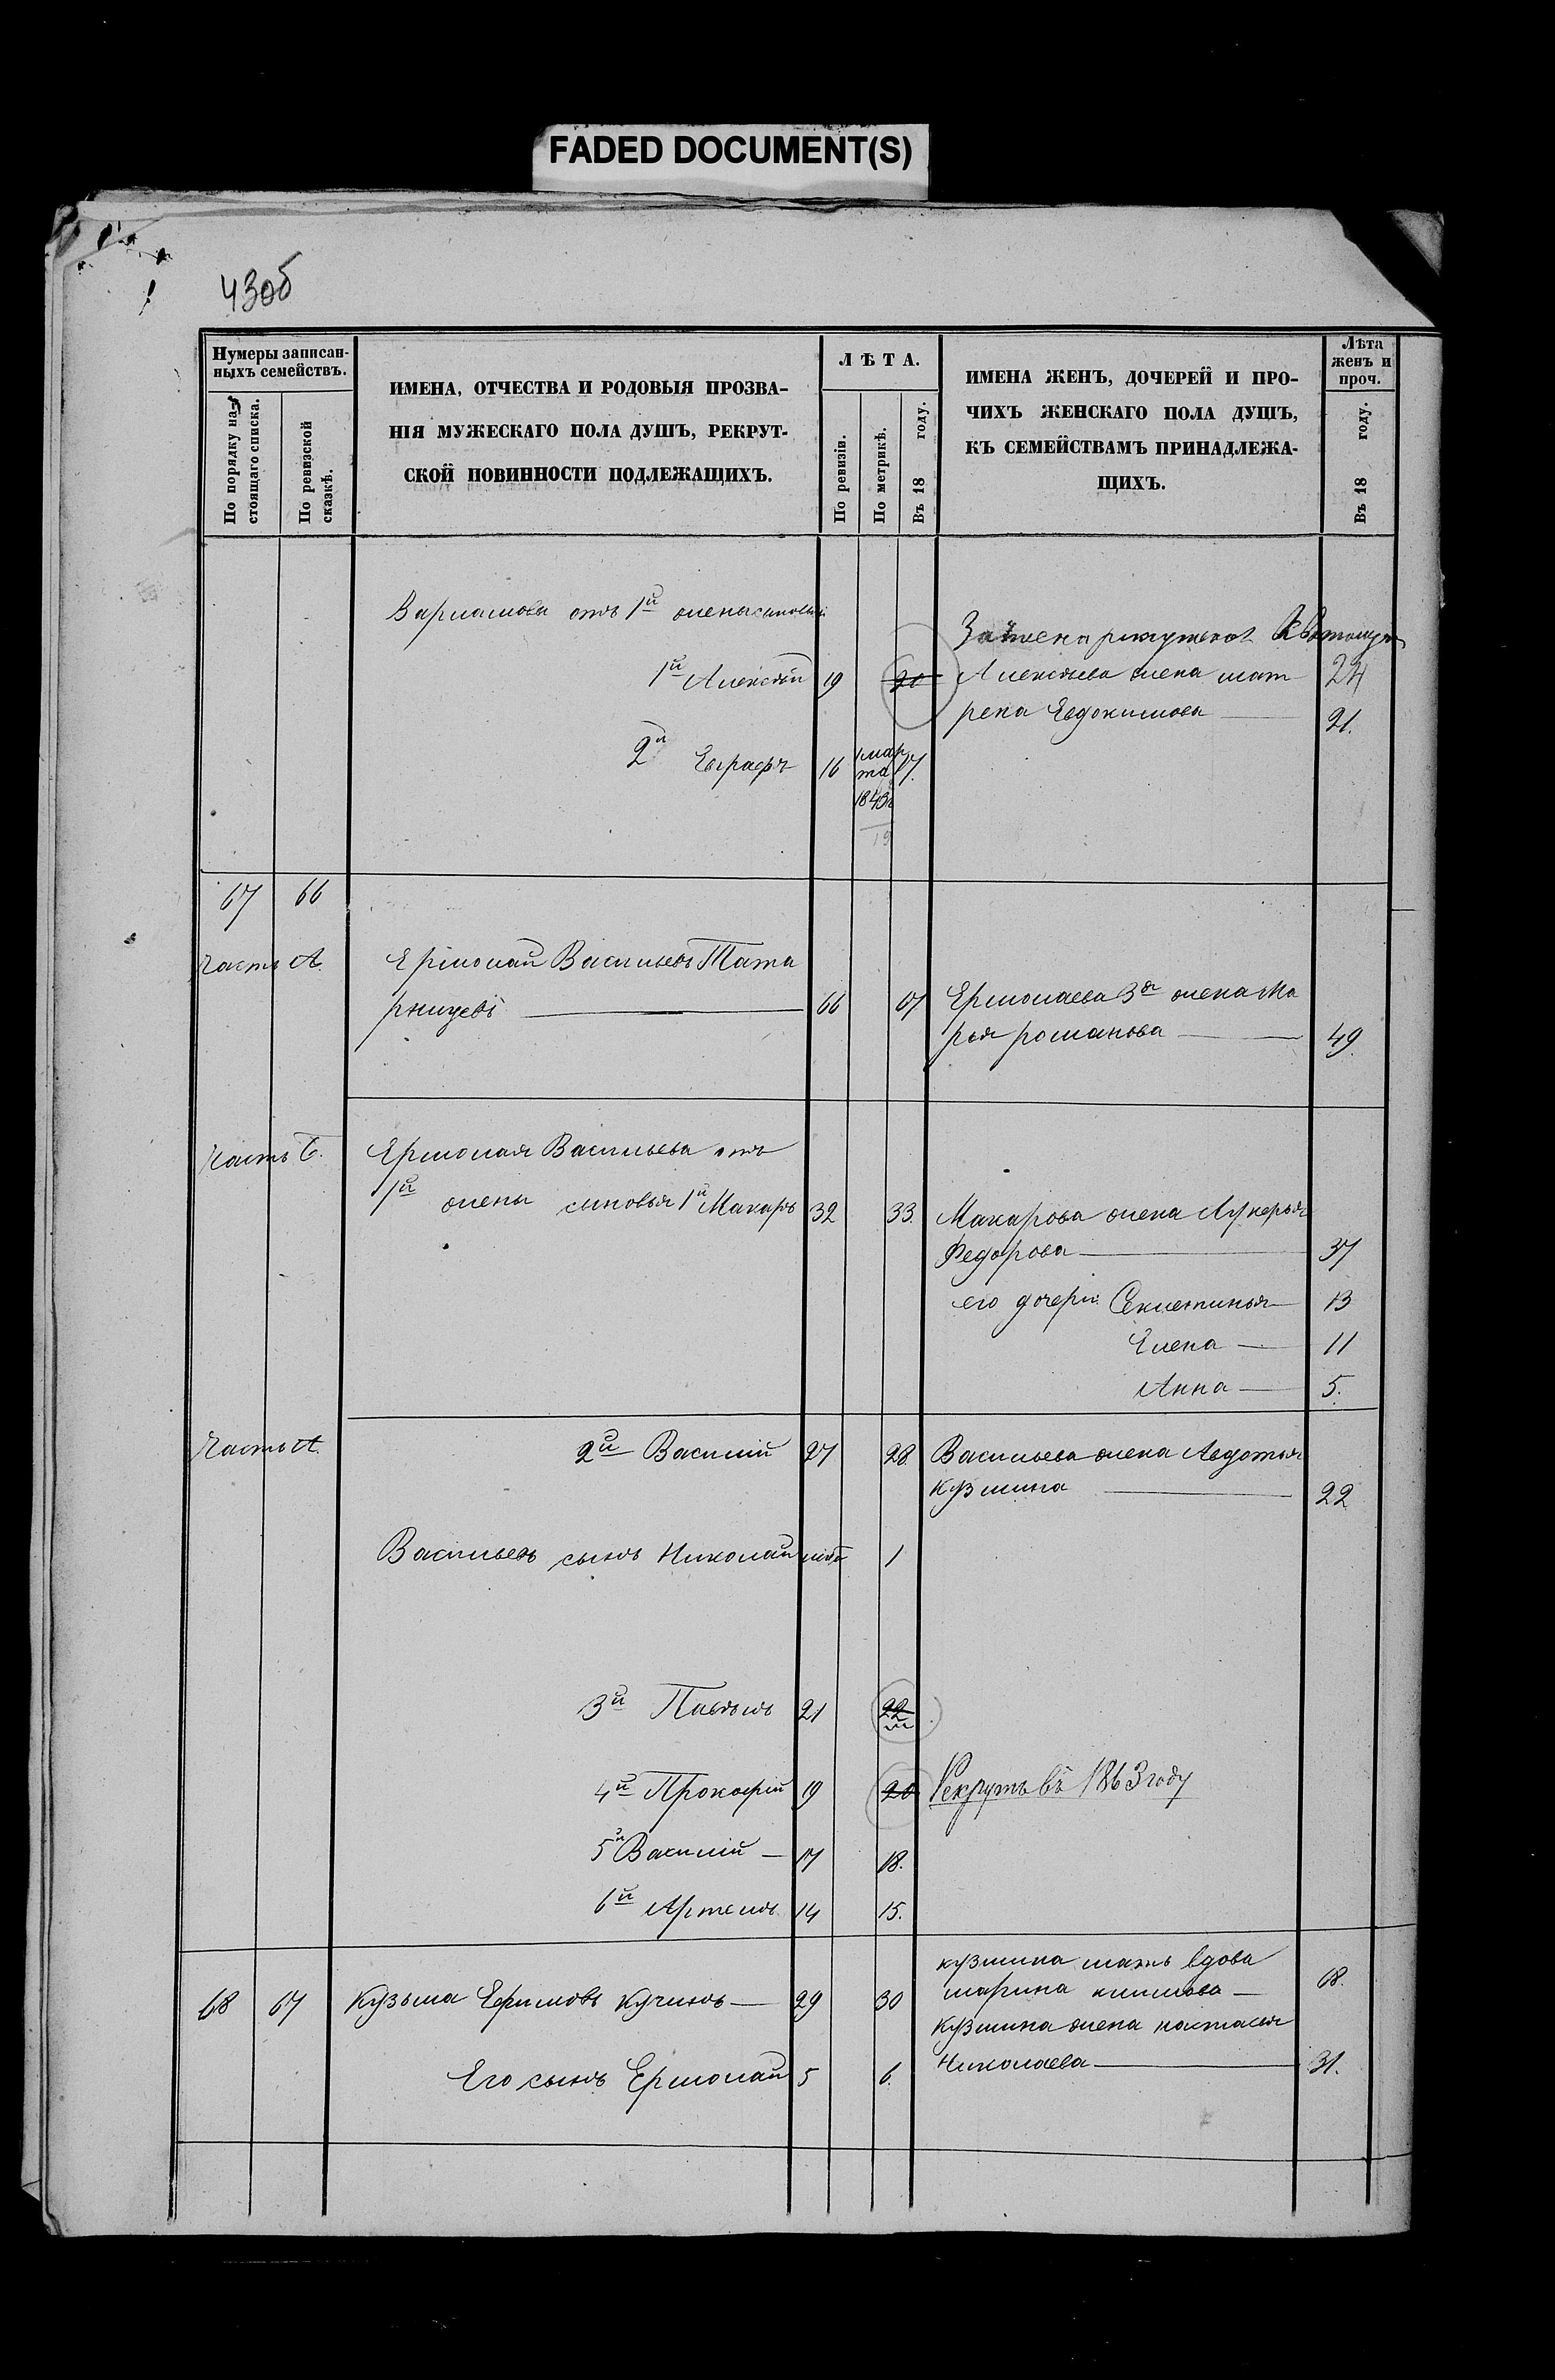 FADED DOCUMENT(S)
43об
Нумеры записан-
ныхъ семействъ.
По порядку на-
стоящаго списка.
По ревизской
сказкѣ.
ИМЕНА, ОТЧЕСТВА И РОДОВЫЯ ПРОЗВА-
НІЯ МУЖЕСКАГО ПОЛА ДУШЪ, РЕКРУТ-
СКОЙ ПОВИННОСТИ ПОДЛЕЖАЩИХЪ.
ЛѢТА.
По ревизіи.
По метрикѣ.
Въ 18 году.
ИМЕНА ЖЕНЪ, ДОЧЕРЕЙ И ПРО-
ЧИХЪ ЖЕНСКАГО ПОЛА ДУШЪ,
КЪ СЕМЕЙСТВАМЪ ПРИНАДЛЕЖА-
ЩИХЪ.
Лѣта
женъ и
проч.
Въ 18 году.
Варламова отъ 1й жены сыновья
1й Алексѣй 19 20
Алексѣева жена мат 24
рена Евдокимова 21.
2й Евграфъ 16 1 мар
та 17.
1843г
19
67 66
Часть А. Ермолай Васильевъ Тата
рницевъ 66 67 Ермолаева 3я жена Ма
рья романова 49.
Часть Б. Ермолая Васильева отъ
1й жены сыновья 1й Макаръ 32 33. Макарова жена Лукерья
Федорова 37
его дочери Секлетинья 13
Елена 11
Анна 5.
Часть А. 2й Василій 27 28. Васильева жена Авдотья
кузмина 22
Васильевъ сынъ Николай 1
3й Павѣлъ 21 22
4й Прокофій 19 20 Рекрутъ въ 1863 году
5й Василій 17 18.
6й Артемъ 14 15.
кузмина мать вдова
марина климова 68.
68 67 Кузьма Ефимовъ Кучинъ 29 30
Кузмина жена настасья
Николаева 31.
Его сынъ Ермолай 5 6.